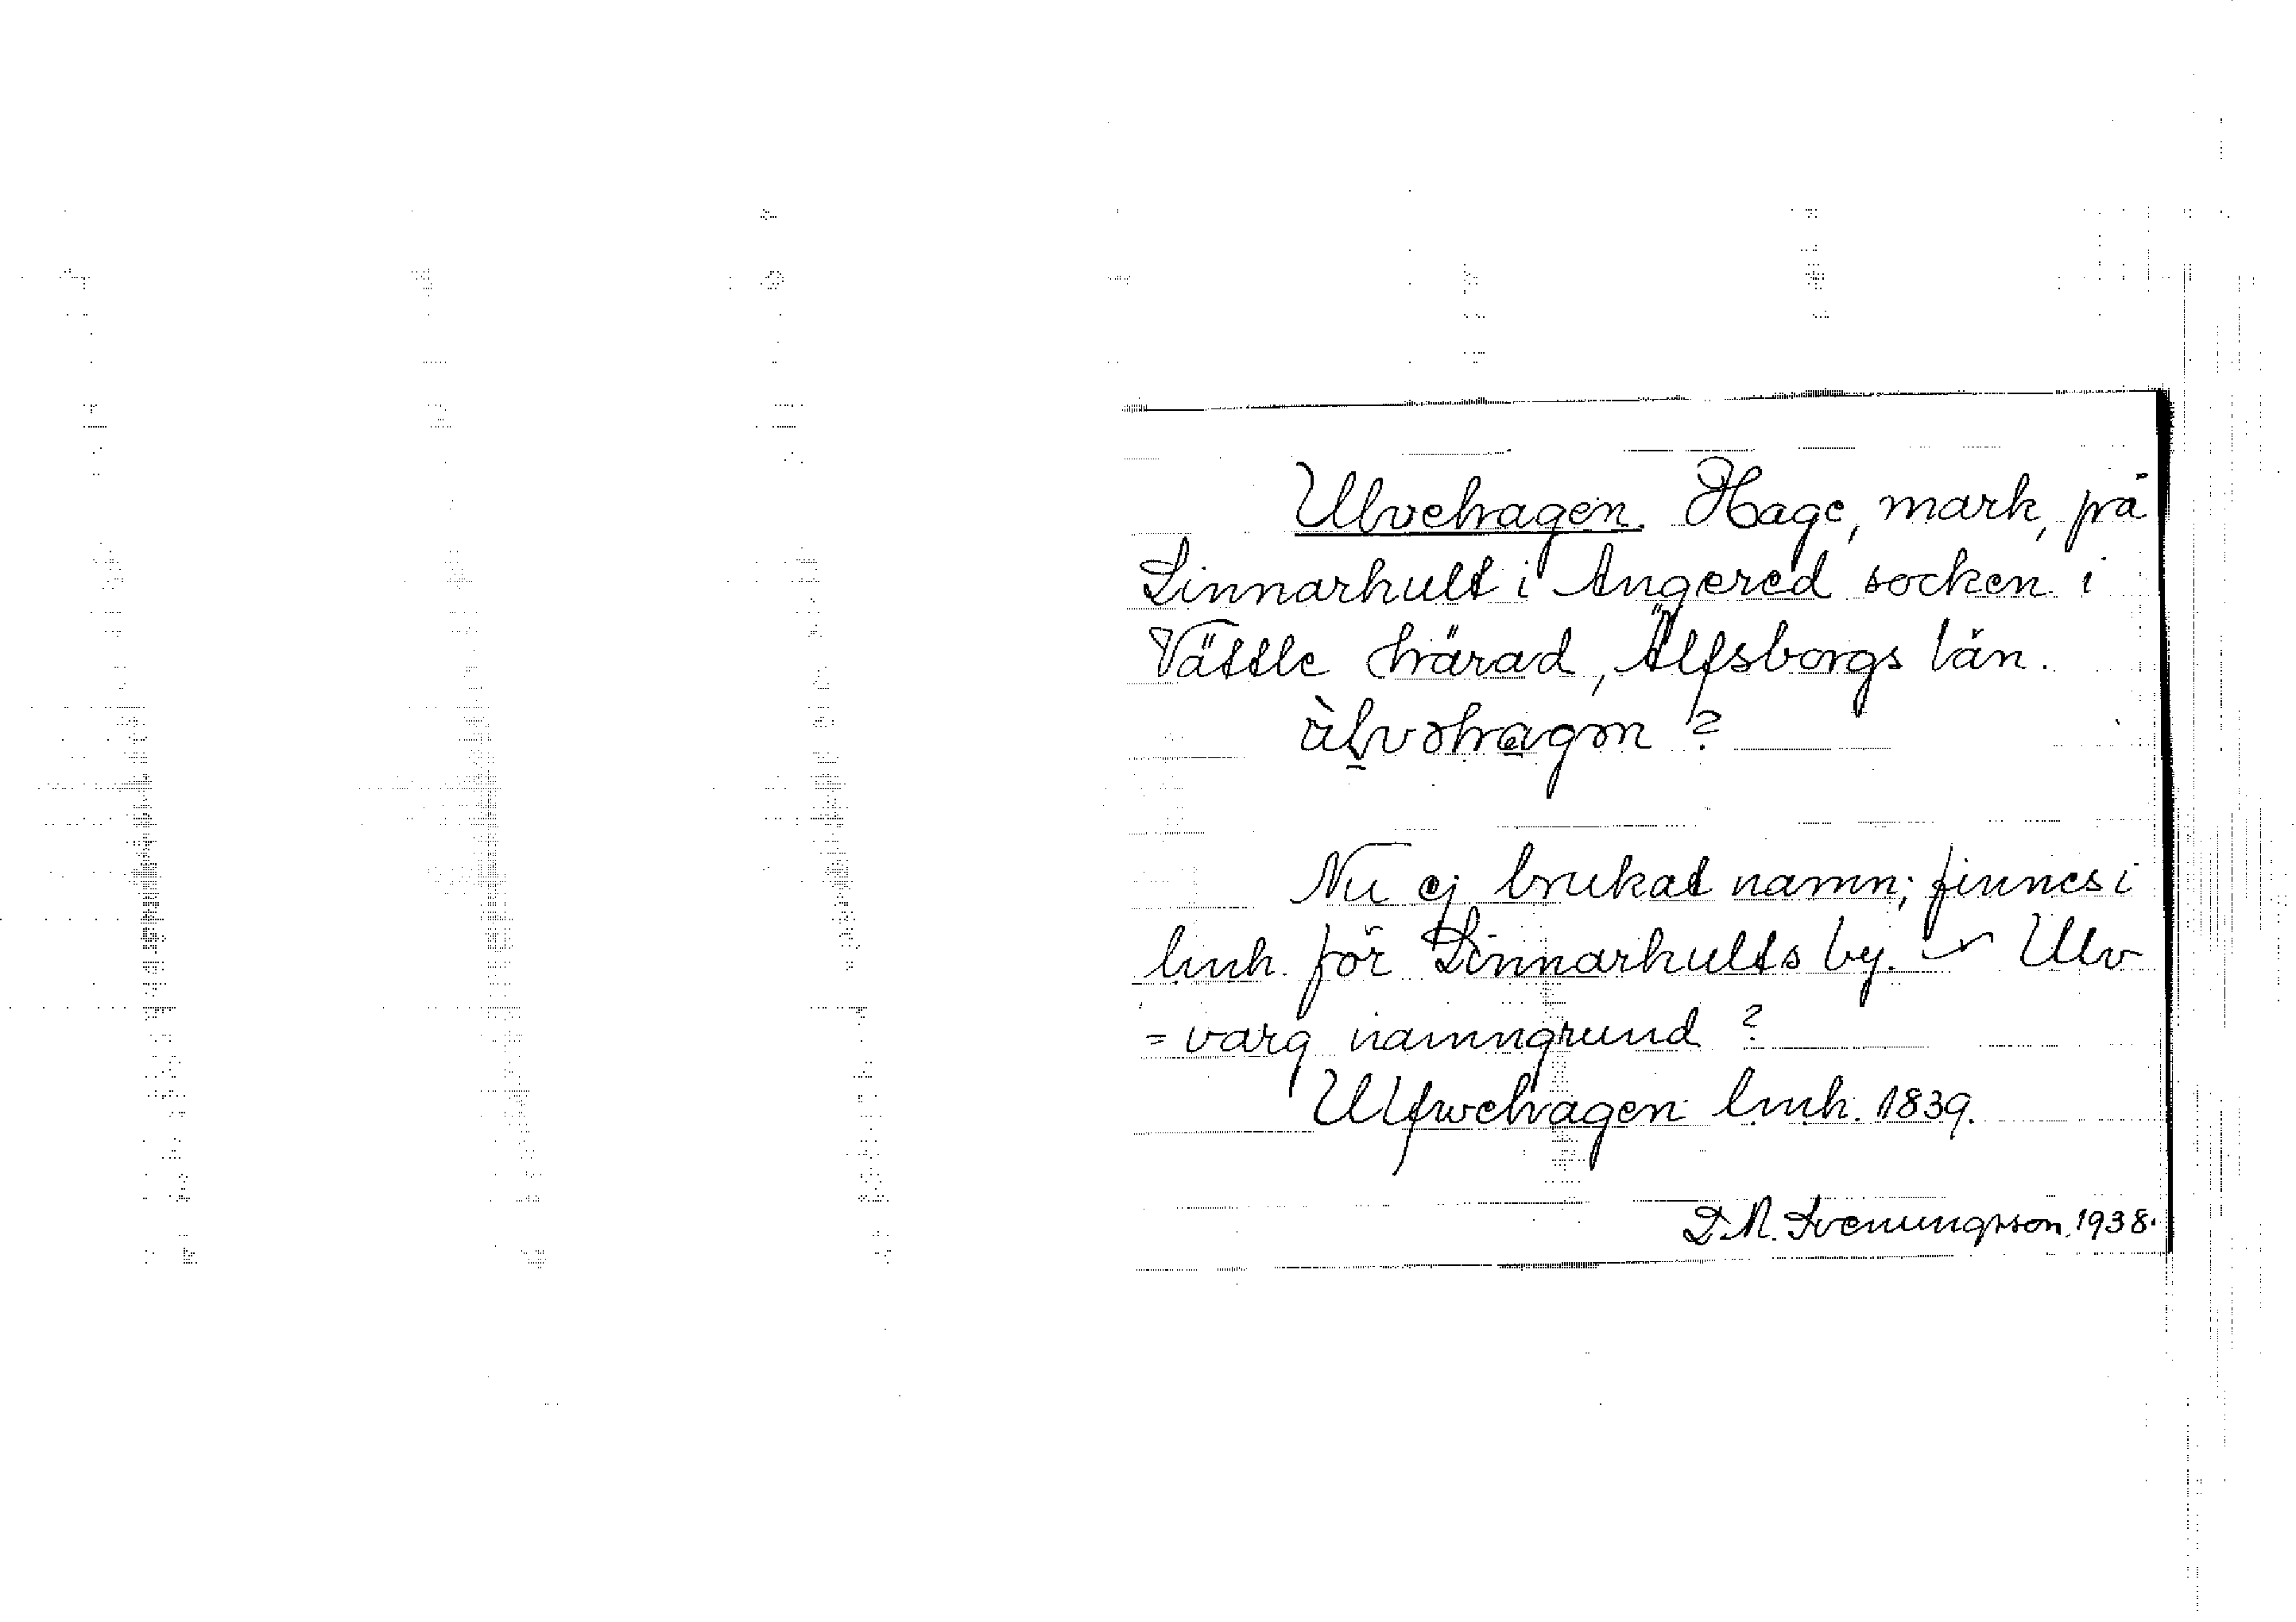 Ulvehagen. Hage, mark, på
Linnarhult i Angered socken i
Vättle härad, Älfsborgs län.
ùlvəhagən ?
Nu ej brukat namn; finnes i
lmh. för Linnarhults by. ~ Ulv
= varg namngrund ?
Ulfwehagen lmh. 1839.
D. A. Svenungsson, 1938.